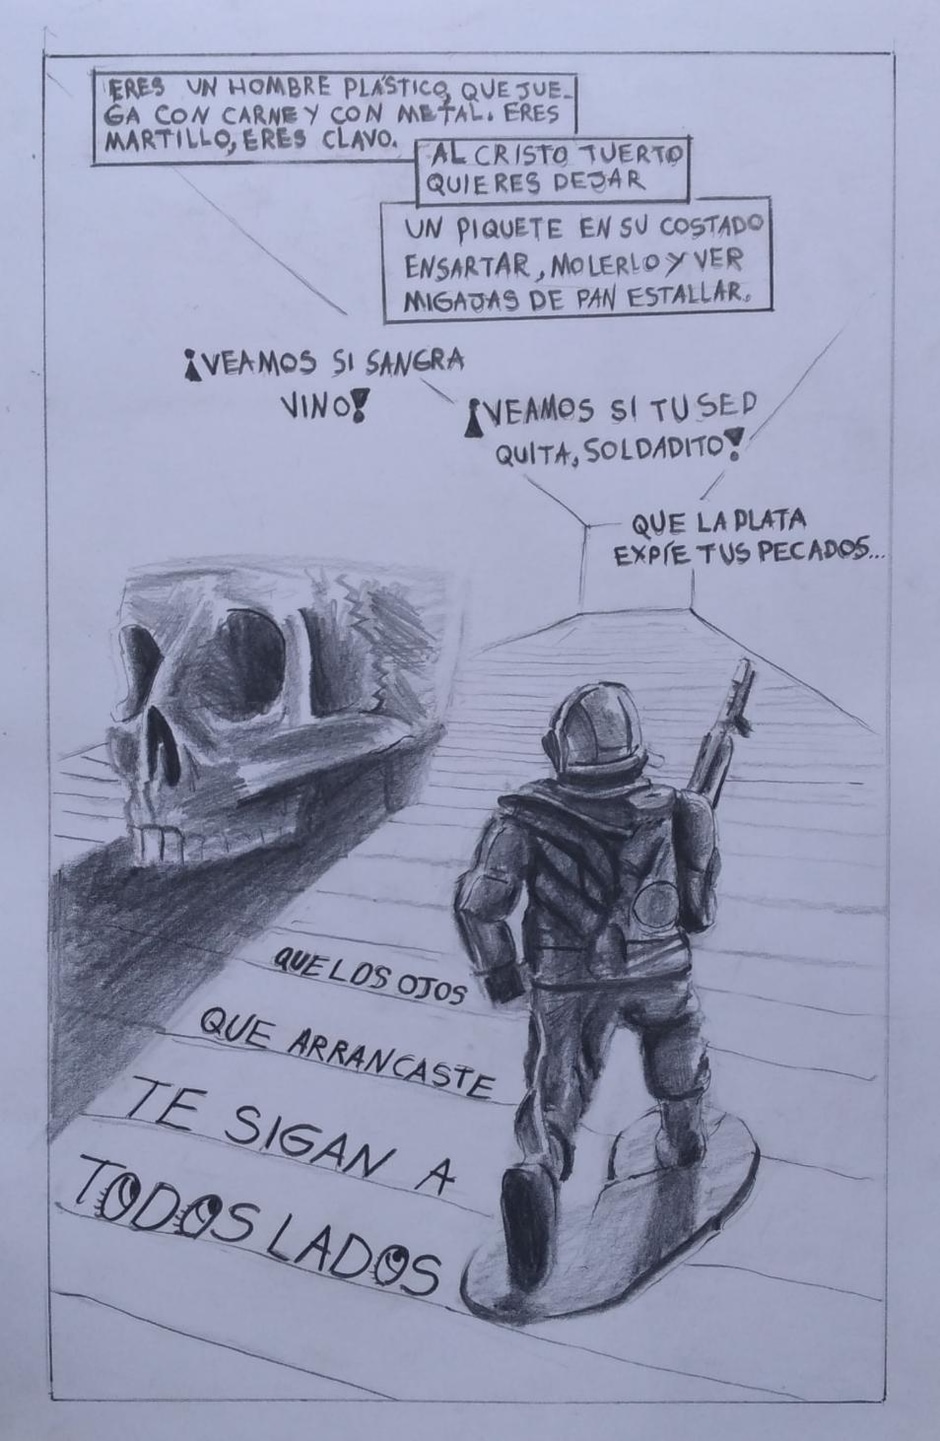 ERES UN HOMBRE PLÁSTICO, QUE JUE-
GA CON CARNE Y CON METAL. ERES
MARTILLO, ERES CLAVO.
AL CRISTO TUERTO
QUIERES DEJAR
UN PIQUETE EN SU COSTADO
ENSARTAR, MOLERLO Y VER
MIGAJAS DE PAN ESTALLAR.
¡VEAMOS SI SANGRA
VINO!
¡VEAMOS SI TU SED
QUITA, SOLDADITO!
QUE LA PLATA
EXPÍE TUS PECADOS...
QUE LOS OJOS
QUE ARRANCASTE
TE SIGAN A
TODOS LADOS